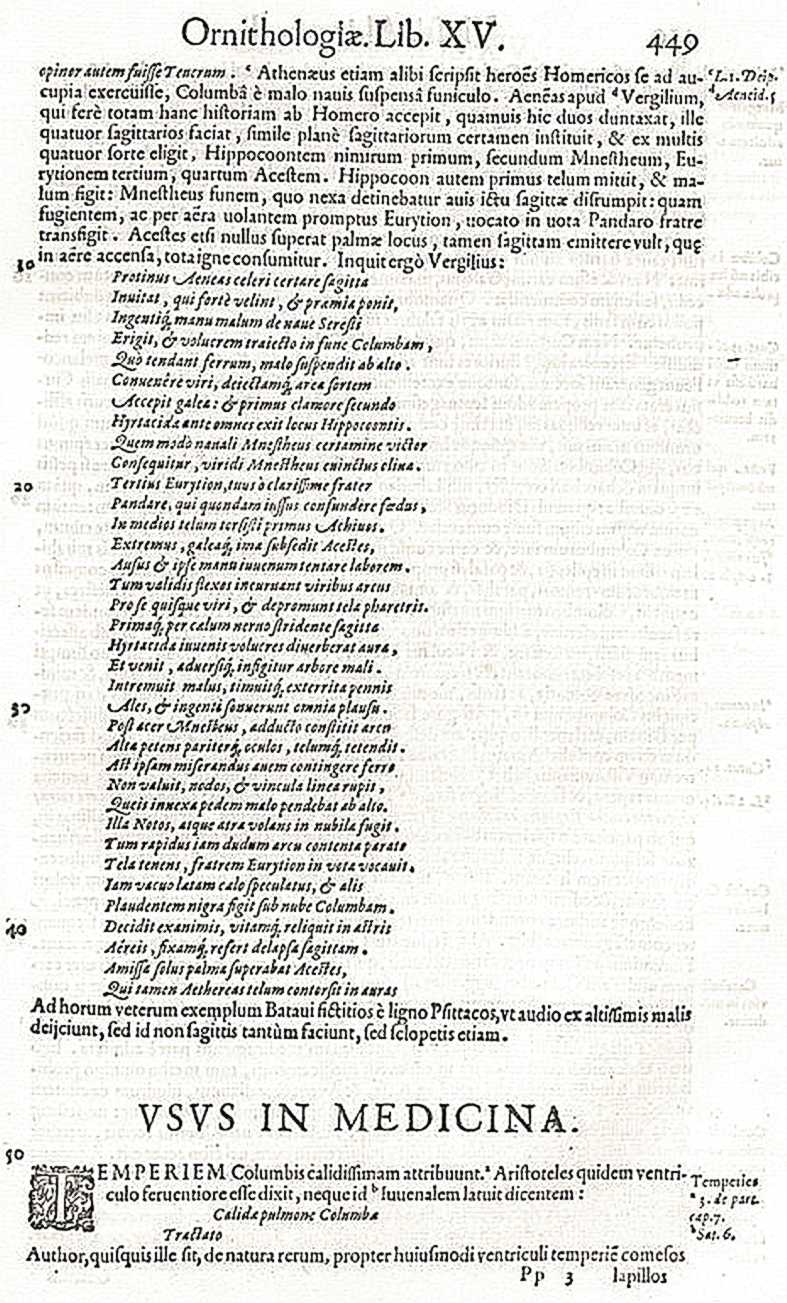 Ornithologiæ. Lib. XV. 449
opinor autem fuisse Teucrum. ᶜ Athenæus etiam alibi scripsit heroës Homericos se ad au- ᶜ L.1. Deip.
cupia exercuisse, Columbâ è malo nauis suspensâ funiculo. Aeneas apud ᵈ Vergilium, ᵈ Aeneid.5
qui ferè totam hanc historiam ab Homero accepit, quamuis hic duos duntaxat, ille
quatuor sagittarios faciat, simile planè sagittariorum certamen instituit, & ex multis
quatuor sorte eligit, Hippocoontem nimirum primum, secundum Mnestheum, Eu-
rytionem tertium, quartum Acestem. Hippocoon autem primus telum mittit, & ma-
lum figit: Mnestheus funem, quo nexa detinebatur auis ictu sagittæ disrumpit: quam
fugientem, ac per aëra uolantem promptus Eurytion, uocato in uota Pandaro fratre
transfigit. Acestes etsi nullus superat palmæ locus, tamen sagittam emittere vult, quę
10 in aëre accensa, tota igne consumitur. Inquit ergò Vergilius:
Protinus Aeneas celeri certare sagitta
Inuitat, qui fortè velint, & præmia ponit,
Ingentiq́; manu malum de naue Seresti
Erigit, & volucrem traiecto in fune Columbam,
Quò tendant ferrum, malo suspendit ab alto.
Conuenêre viri, deiectamq́; ærea sortem
Accepit galea: & primus clamore secundo
Hyrtacidæ ante omnes exit locus Hippocoontis.
Quem modò nauali Mnestheus certamine victor
Consequitur, viridi Mnestheus euinctus oliua.
20 Tertius Eurytion, tuus ò clarissime frater
Pandare, qui quondam iussus confundere fædus,
In medios telum torsisti primus Achiuos.
Extremus, galeaq́; ima subsedit Acestes,
Ausus & ipse manu iuuenum tentare laborem.
Tum validis flexos incuruant viribus arcus
Pro se quisque viri, & depromunt tela pharetris.
Primaq́; per cælum neruo stridente sagitta
Hyrtacidæ iuuenis volucres diuerberat auras,
Et venit, aduersiq́; infigitur arbore mali.
Intremuit malus, timuitq́; exterrita pennis
30 Ales, & ingenti sonuerunt omnia plausu.
Post acer Mnestheus, adducto constitit arcu
Alta petens pariterq́; oculos, telumq́; tetendit.
Ast ipsam miserandus auem contingere ferro
Non valuit, nodos, & vincula linea rupit,
Queis innexa pedem malo pendebat ab alto.
Illa Notos, atque atra volans in nubila fugit.
Tum rapidus iam dudum arcu contenta parato
Tela tenens, fratrem Eurytion in vota vocauit.
Iam vacuo lætam cælo speculatus, & alis
Plaudentem nigra figit sub nube Columbam.
40 Decidit exanimis, vitamq́; reliquit in astris
Aëreis, fixamq́; refert delapsa sagittam.
Amissa solus palma superabat Acestes,
Qui tamen Aethereas telum contorsit in auras
Ad horum veterum exemplum Bataui fictitios è ligno Psittacos, vt audio ex altissimis malis
deijciunt, sed id non sagittis tantùm faciunt, sed sclopetis etiam.
VSVS IN MEDICINA.
50
TEMPERIEM Columbis calidissimam attribuunt. ᵃ Aristoteles quidem ventri- Temperies
culo feruentiore esse dixit, neque id ᵇ Iuuenalem latuit dicentem: ᵃ 3. de part.
Calida pulmone Columba cap.7.
Tractato ᵇ Sat. 6.
Author, quisquis ille sit, de natura rerum, propter huiusmodi ventriculi temperiē comesos
Pp 3 lapillos